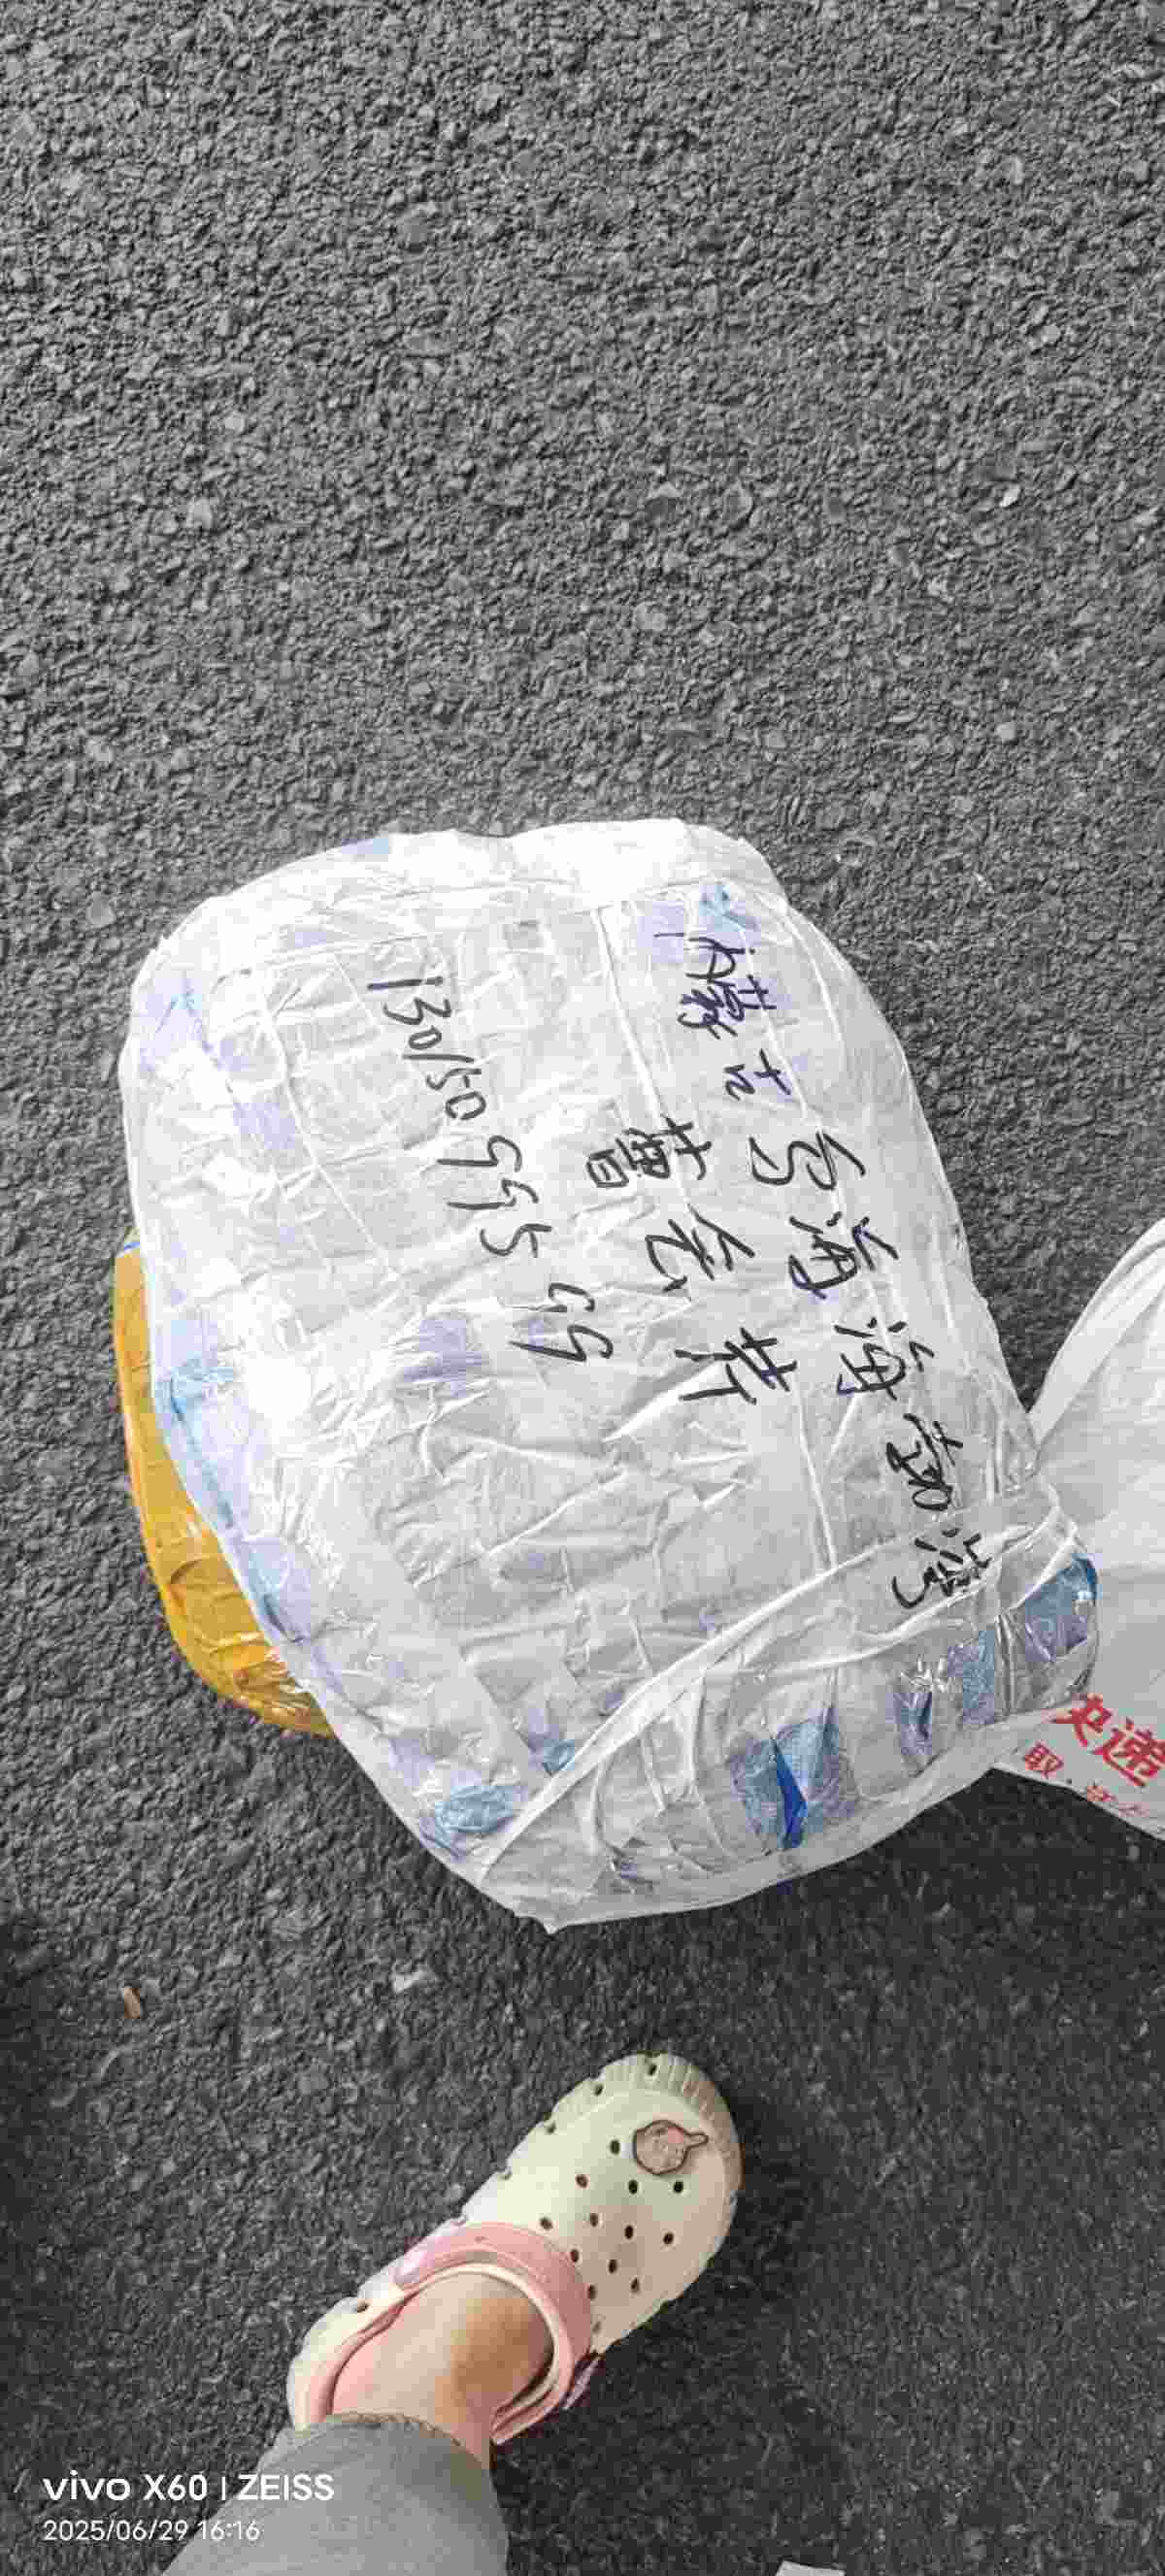 内蒙古乌海海勃湾
曹会芬
13015099559
快递
取
vivo X60 | ZEISS
2025/06/29 16:16